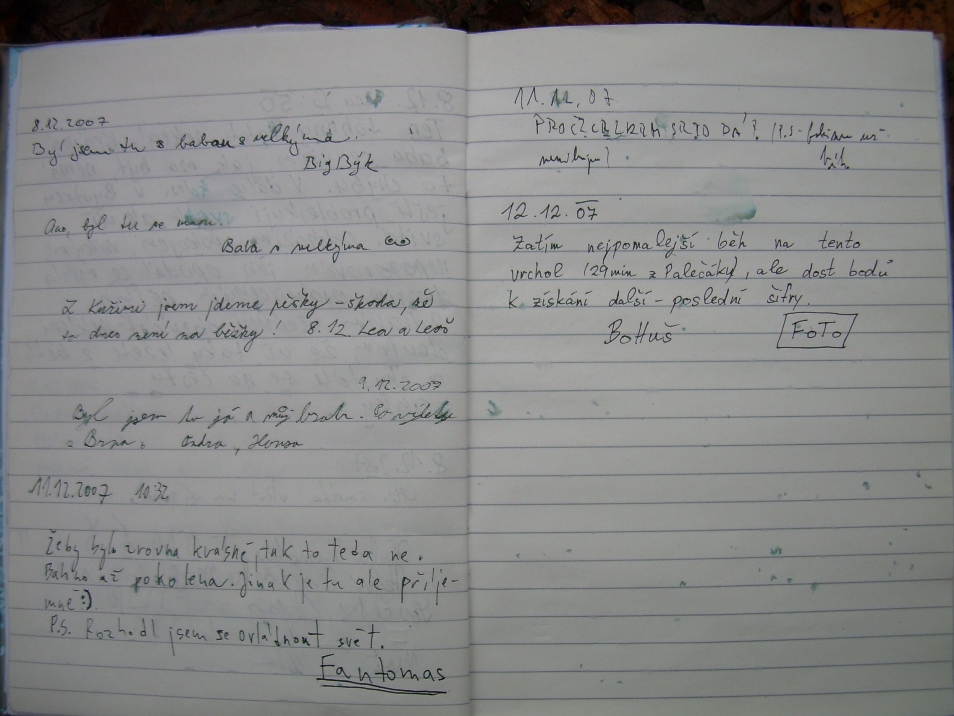 8.12.2007
Byl jsem tu s babou s velkýma
BigBýk
Ano, byl tu se mnou.
Baba s velkýma
Z Kuřimi jsem jdeme pěšky - škoda, že
to dnes není na běžky! 8.12. Lea a Leoš
9.12.2007
Byl jsem tu já a můj brach. Co
z Brna. Ondra, Honza
11.12.2007 10:32
Žeby bylo zrovna krásně, tak to teda ne.
Bahno až po kolena. Jinak je tu ale příje-
mně :)
P.S. Rozhodl jsem se ovládnout svět.
Fantomas
11.12.07
12.12.07
Zatím nejpomalejší běh na tento
vrchol (29min z Palečáky), ale dost bodů
k získání další - poslední šifry.
BoHuš FoTo